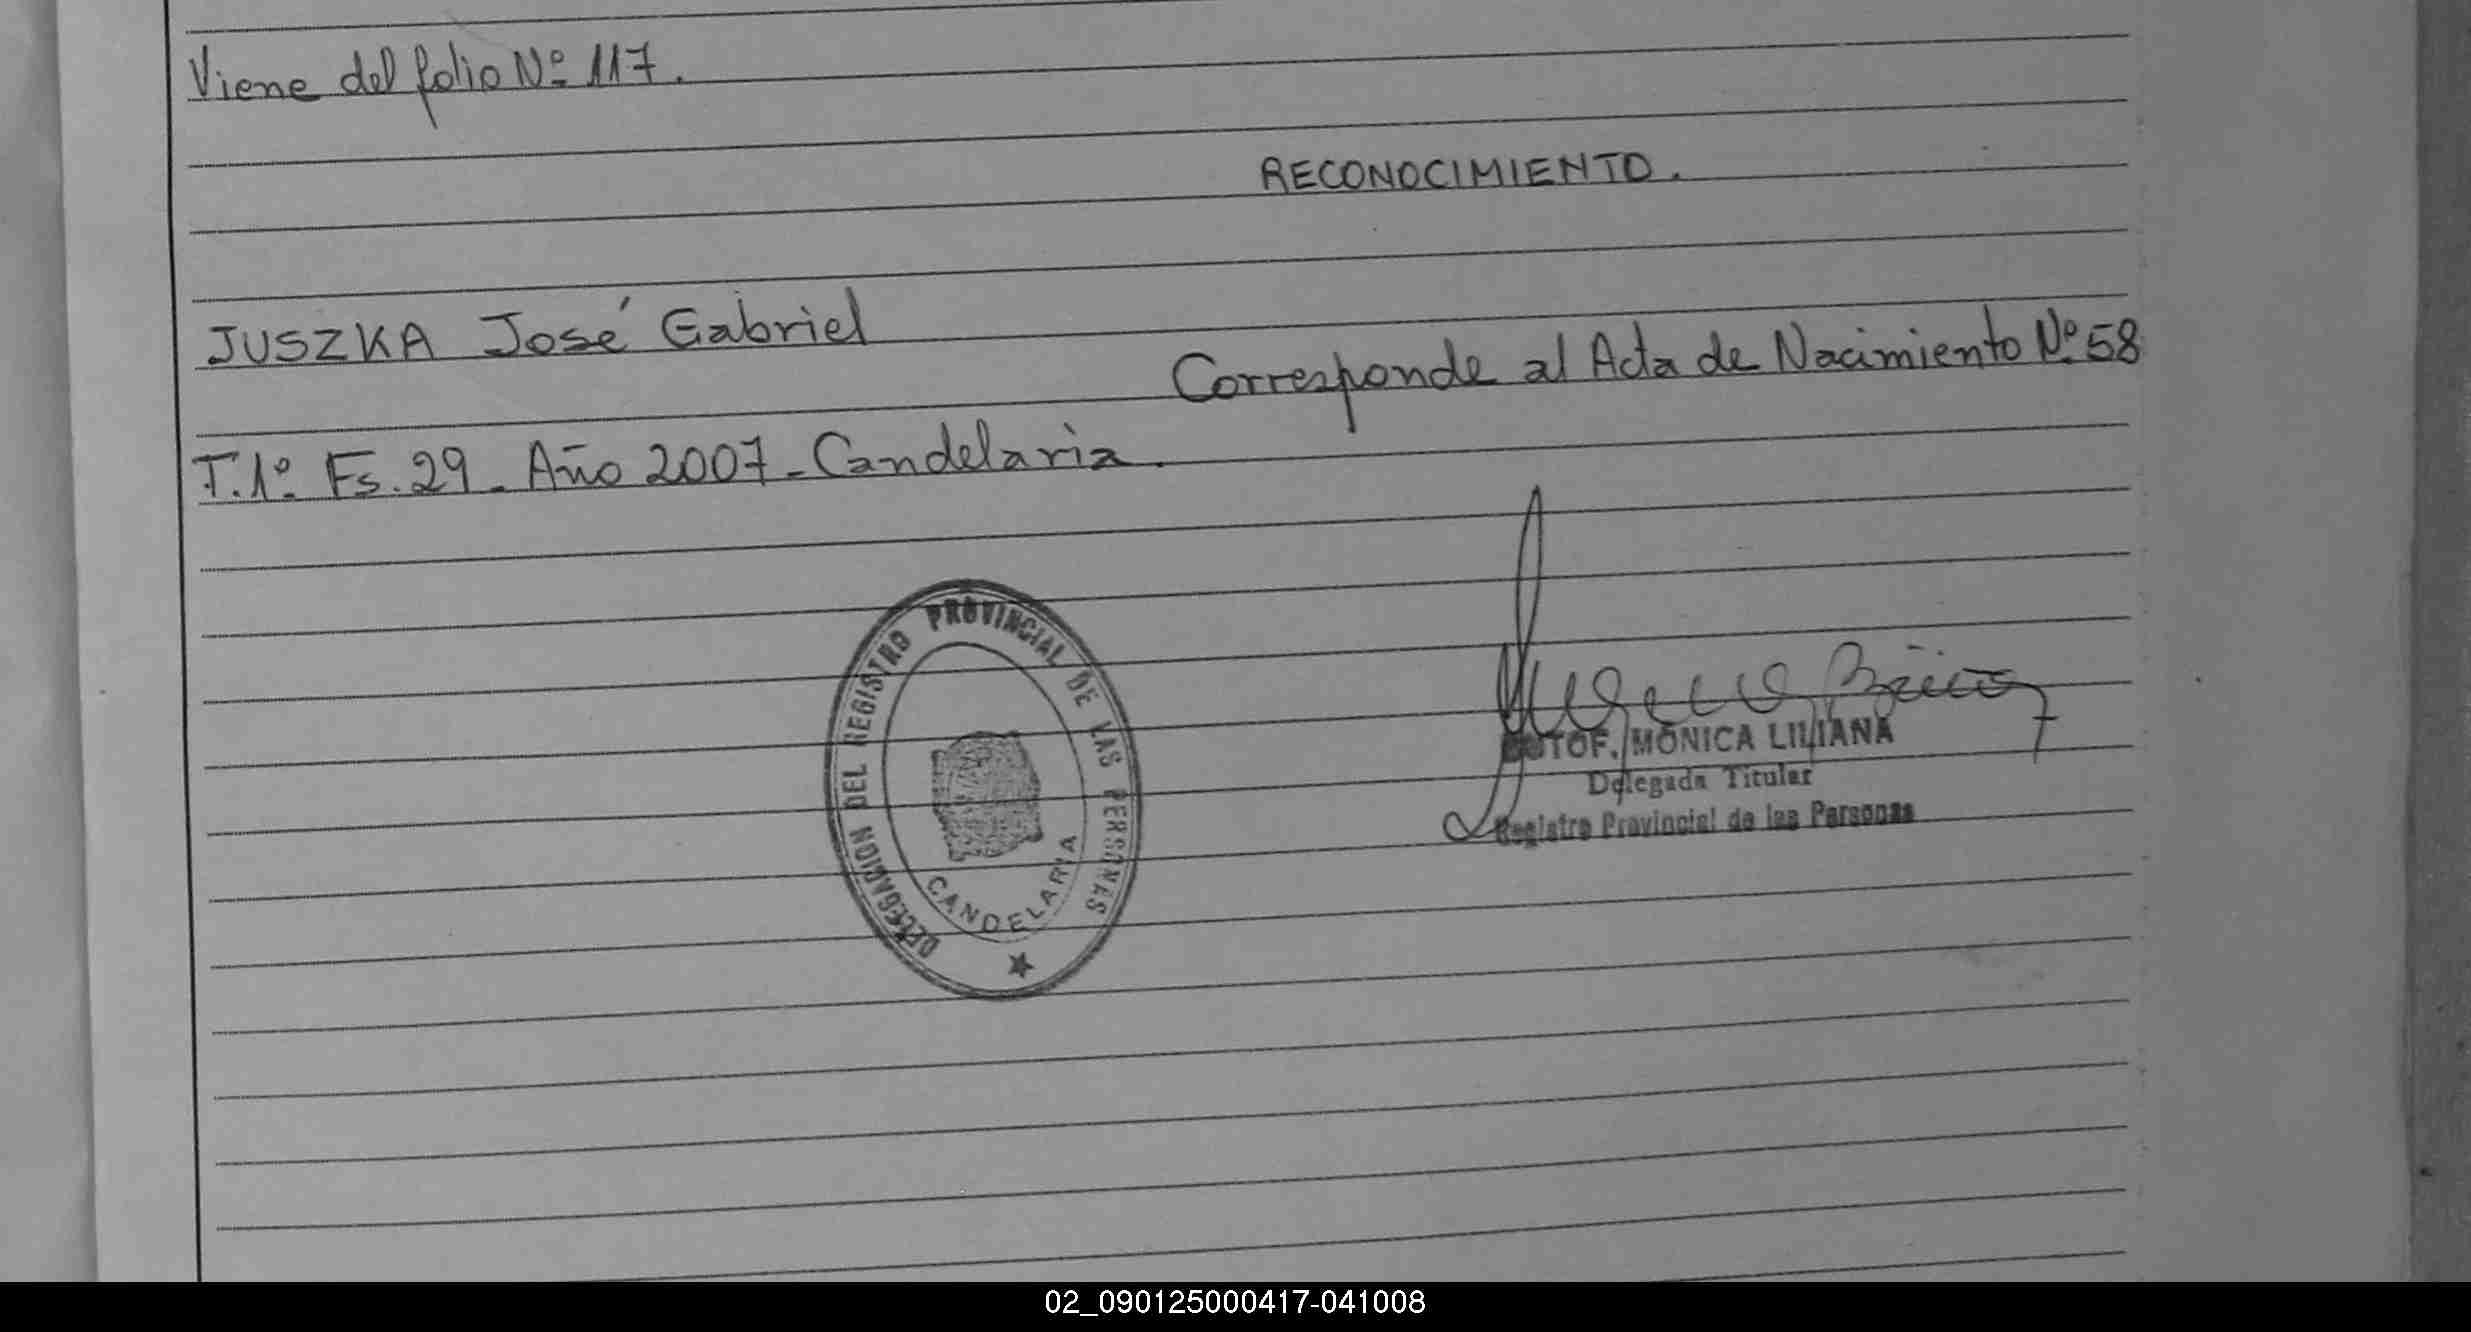 Viene del folio Nº 117.
RECONOCIMIENTO.
JUSZKA José Gabriel
Corresponde al Acta de Nacimiento Nº 58
T.1º. Fs. 29 - Año 2007 - Candelaria.
DELEGACION DEL REGISTRO PROVINCIAL DE LAS PERSONAS
CANDELARIA
MONICA LILIANA
Delegada Titular
Registro Provincial de las Personas
02_090125000417-041008